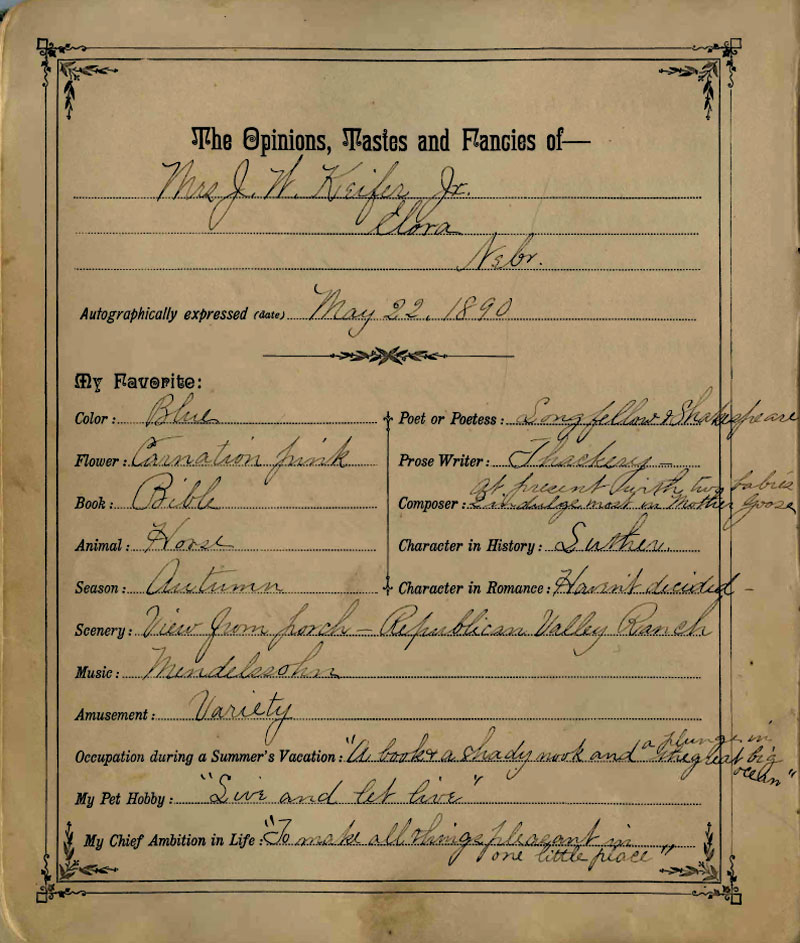 The Opinions, Tastes and Fancies of—
Mrs J. W. Keifer Jr.
Elora
Nebr.
Autographically expressed (date) May 22, 1890
My Favorite:
Color: Blue
Flower: Carnation pink
Book: Bible
Animal: Horse
Season: Autumn
Poet or Poetess: Longfellow & Shakespeare
Prose Writer: Thackery —
at present with two babies
Composer: I indulge most in Mother Goose
Character in History: Luther.
Character in Romance: Havn't decided –
Scenery: View from porch – Republican Valley Ranch
Music: Mendelssohn
Amusement: Variety
Occupation during a Summer's Vacation: "A book & a shady nook and a plunge in
the great big
ocean"
My Pet Hobby: "Live and let live"
My Chief Ambition in Life: "To make all things pleasant in
one little place"